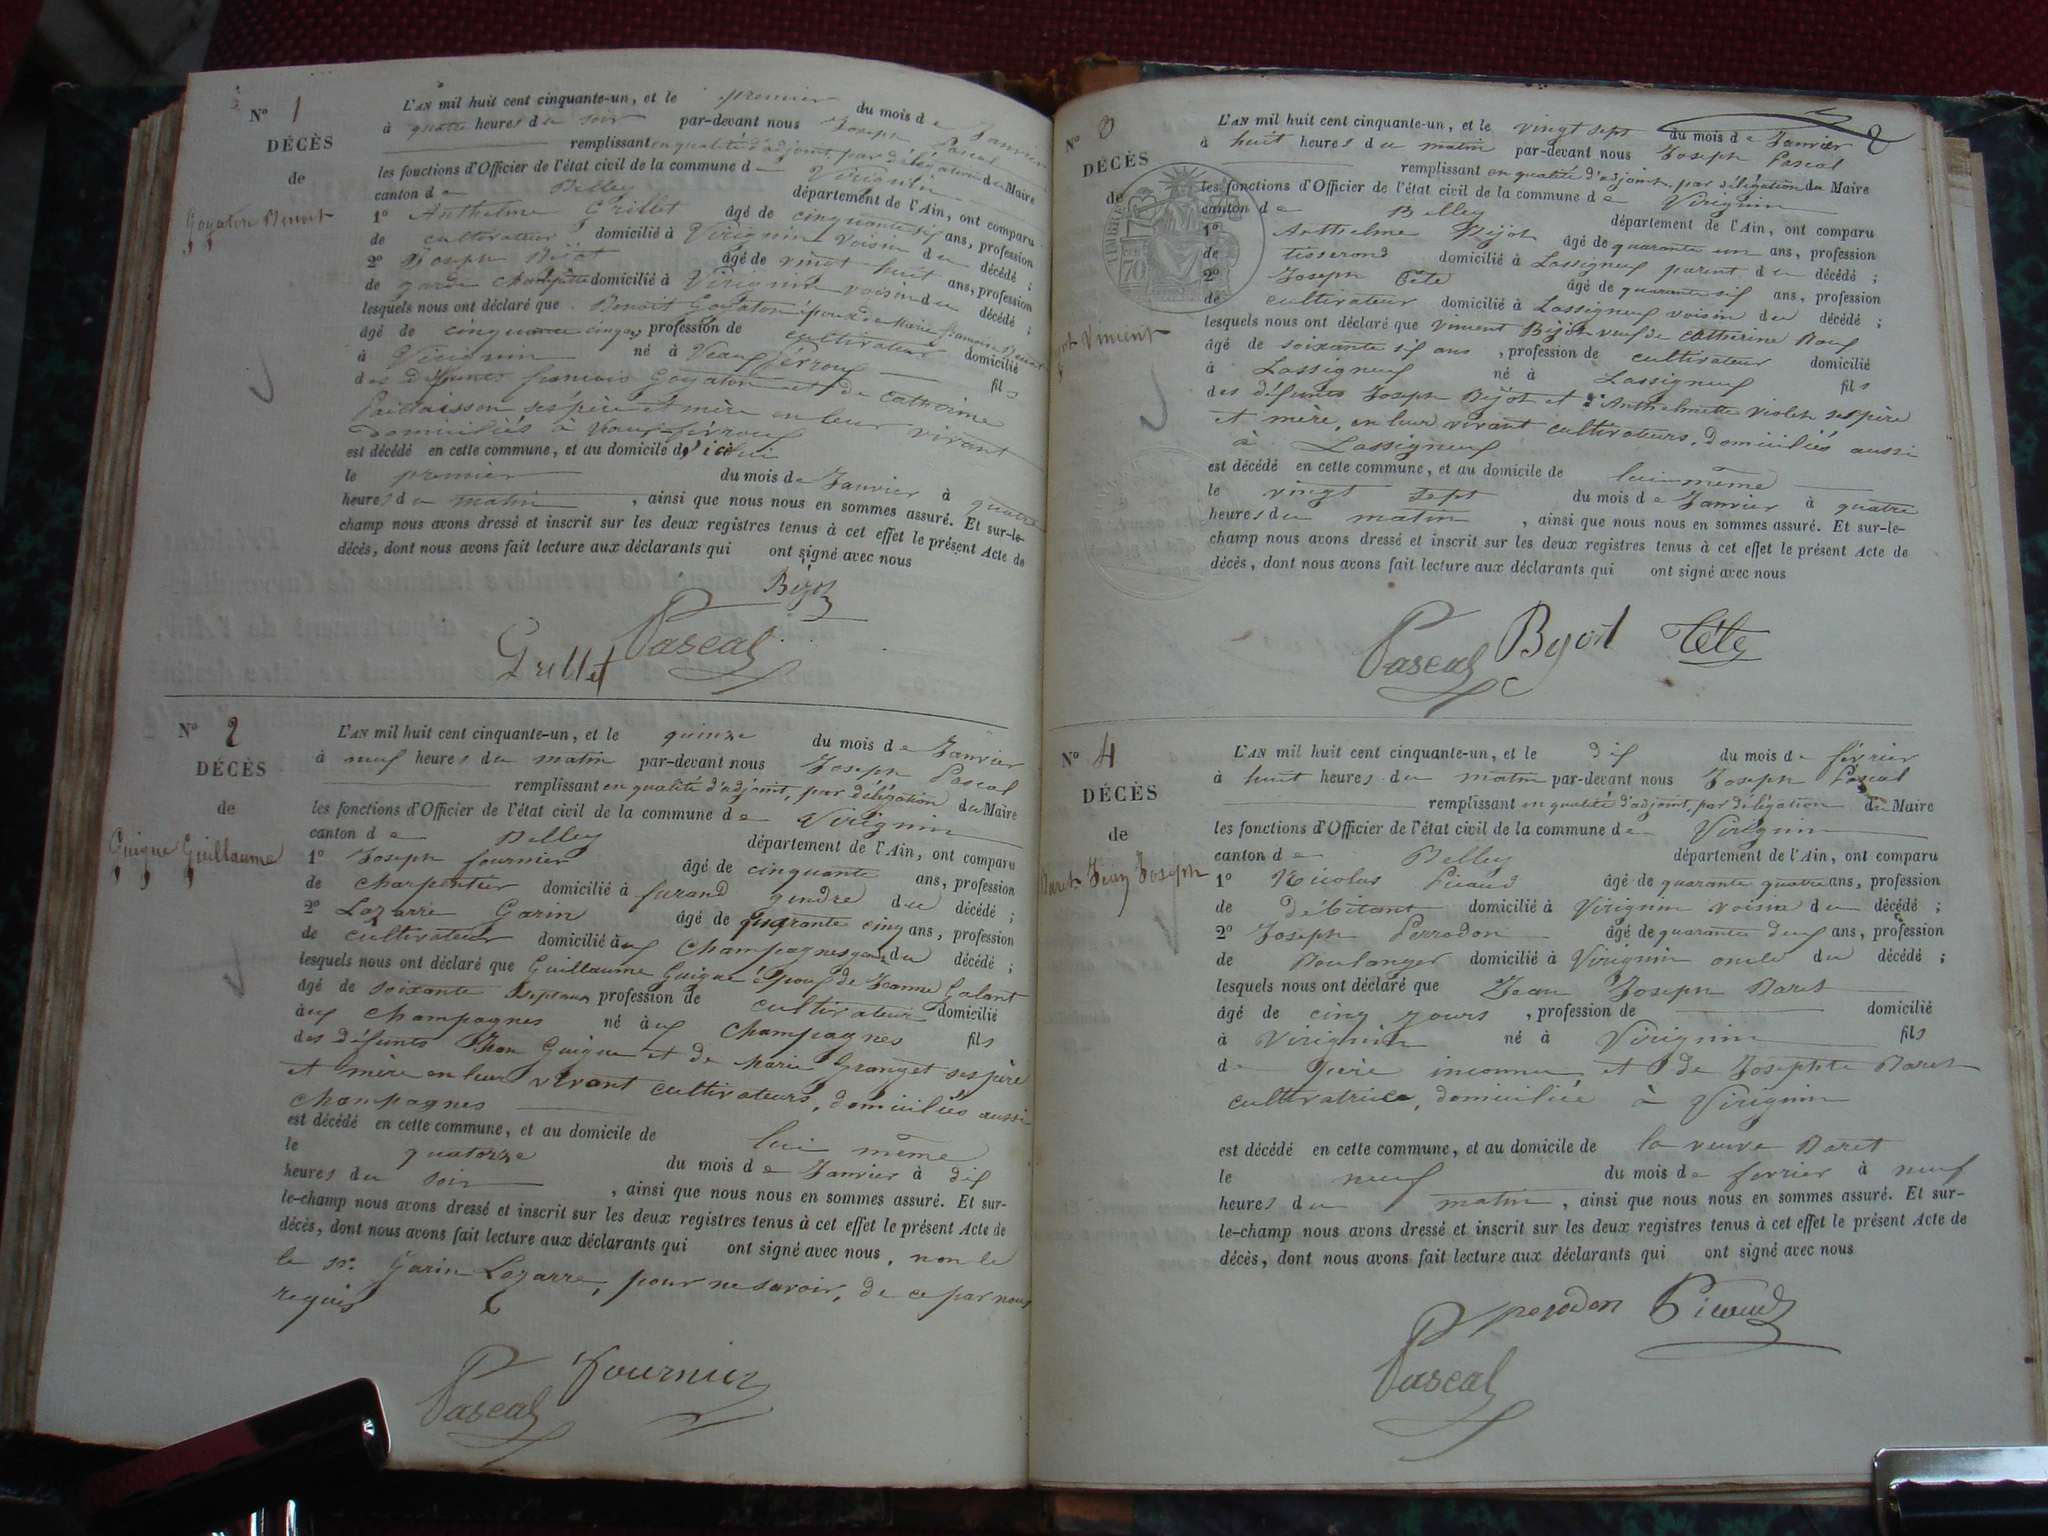 N° 1
DÉCÈS
de
Goyaton Benoit
L'AN mil huit cent cinquante-un, et le premier du mois de Janvier
à quatre heures du soir par-devant nous Joseph Pascal
remplissant en qualité d'adjoint, par délégation du Maire
les fonctions d'Officier de l'état civil de la commune de Virignin
canton de Belley département de l'Ain, ont comparu
1° Anthelme Grillet âgé de cinquante six ans, profession
de cultivateur domicilié à Virignin voisin du décédé ;
2° Joseph Bijot âgé de vingt huit ans, profession
de garde champêtre domicilié à Virignin voisin du décédé ;
lesquels nous ont déclaré que Benoit Goyaton époux de Marie françoise
âgé de cinquante cinq ans, profession de cultivateur domicilié
à Virignin né à fils
des défunts françois Goyaton et de Catherine
ses père et mère en leur vivant
domiciliés à
est décédé en cette commune, et au domicile de
le premier du mois de Janvier à quatre
heures du matin , ainsi que nous nous en sommes assuré. Et sur-le-
champ nous avons dressé et inscrit sur les deux registres tenus à cet effet le présent Acte de
décès, dont nous avons fait lecture aux déclarants qui ont signé avec nous
Bijot
Grillet Pascal
N° 2
DÉCÈS
de
Guigue Guillaume
L'AN mil huit cent cinquante-un, et le quinze du mois de Janvier
à neuf heures du matin par-devant nous Joseph Pascal
remplissant en qualité d'adjoint, par délégation du Maire
les fonctions d'Officier de l'état civil de la commune de Virignin
canton de Belley département de l'Ain, ont comparu
1° Joseph fournier âgé de cinquante ans, profession
de charpentier domicilié à furand gendre du décédé ;
2° Lazarre Garin âgé de quarante cinq ans, profession
de cultivateur domicilié aux Champagnes du décédé ;
lesquels nous ont déclaré que Guillaume Guigue époux de Jeanne Galant
âgé de soixante sept ans profession de cultivateur domicilié
aux Champagnes né aux Champagnes fils
des défunts Jean Guigue et de Marie Granget ses père
et mère en leur vivant cultivateurs, domiciliés aussi
Champagnes
est décédé en cette commune, et au domicile de lui même
le quatorze du mois de Janvier à dix
heures du soir , ainsi que nous nous en sommes assuré. Et sur-
le-champ nous avons dressé et inscrit sur les deux registres tenus à cet effet le présent Acte de
décès, dont nous avons fait lecture aux déclarants qui ont signé avec nous, non le
le sr. Garin Lazarre, pour ne savoir, de ce par nous
requis
Pascal Fournier
2
N° 3
DÉCÈS
de
Vincent
TIMBRE
70
L'AN mil huit cent cinquante-un, et le vingt sept du mois de Janvier
à huit heures du matin par-devant nous Joseph Pascal
remplissant en qualité d'adjoint, par délégation du Maire
les fonctions d'Officier de l'état civil de la commune de Virignin
canton de Belley département de l'Ain, ont comparu
1° Anthelme Bijot âgé de quarante un ans, profession
de tisserand domicilié à Lassigneux parent du décédé ;
2° Joseph Tête âgé de quarante six ans, profession
de cultivateur domicilié à Lassigneux voisin du décédé ;
lesquels nous ont déclaré que Vincent Bijot veuf de Catherine
âgé de soixante six ans , profession de cultivateur domicilié
à Lassigneux né à Lassigneux fils
des défunts Joseph Bijot et d'Anthelmette Violet ses père
et mère, en leur vivant cultivateurs, domiciliés aussi
à Lassigneux
est décédé en cette commune, et au domicile de lui même
le vingt sept du mois de Janvier à quatre
heures du matin , ainsi que nous nous en sommes assuré. Et sur-le-
champ nous avons dressé et inscrit sur les deux registres tenus à cet effet le présent Acte de
décès, dont nous avons fait lecture aux déclarants qui ont signé avec nous
Pascal Bijot Tête
N° 4
DÉCÈS
de
Baret Jean Joseph
L'AN mil huit cent cinquante-un, et le dix du mois de février
à huit heures du matin par-devant nous Joseph Pascal
remplissant en qualité d'adjoint, par délégation du Maire
les fonctions d'Officier de l'état civil de la commune de Virignin
canton de Belley département de l'Ain, ont comparu
1° Nicolas Picaud âgé de quarante quatre ans, profession
de débitant domicilié à Virignin voisin du décédé ;
2° Joseph Perrodon âgé de quarante deux ans, profession
de Boulanger domicilié à Virignin oncle du décédé ;
lesquels nous ont déclaré que Jean Joseph Baret
âgé de cinq jours , profession de domicilié
à Virignin né à Virignin fils
de père inconnu et de Josephte Baret
cultivatrice, domiciliée à Virignin
est décédé en cette commune, et au domicile de la veuve Baret
le neuf du mois de février à neuf
heures du matin , ainsi que nous nous en sommes assuré. Et sur-
le-champ nous avons dressé et inscrit sur les deux registres tenus à cet effet le présent Acte de
décès, dont nous avons fait lecture aux déclarants qui ont signé avec nous
perodon Picaud
Pascal